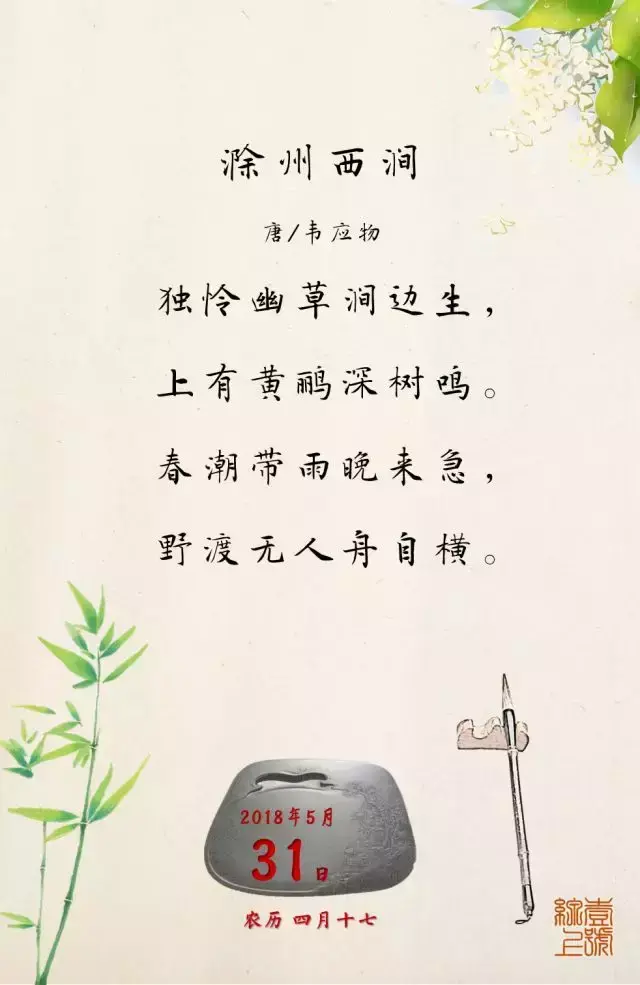 滁州西涧
唐/韦应物
独怜幽草涧边生，
上有黄鹂深树鸣。
春潮带雨晚来急，
野渡无人舟自横。
2018年5月
31日
农历 四月十七